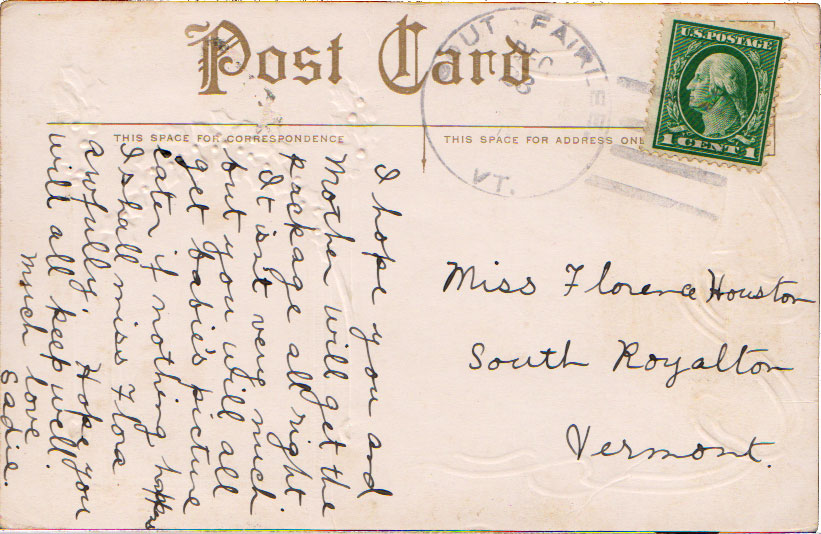 Post Card
SOUT FAIRLEE
DEC
VT.
U.S. POSTAGE
1 CENT 1
THIS SPACE FOR CORRESPONDENCE
THIS SPACE FOR ADDRESS ONL
I hope you and
Mother will get the
package all right.
It isn't very much
but you will all
get babie's picture
later if nothing happens
I shall miss Flora
awfully. Hope you
will all keep well.
much love
Sadie.
Miss Florence Houston
South Royalton
Vermont.